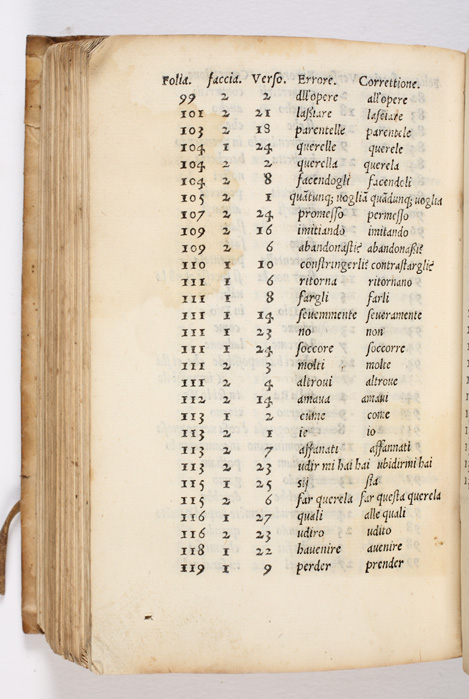 Folia. faccia. Verso. Errore. Correttione.
99 2 2 dll'opere all'opere
101 2 21 lastare lasciare
103 2 18 parentelle parentele
104 1 24 querelle querele
104 2 2 querella querela
104 2 8 facendogli facendoli
105 2 1 quãtunq; uogliã quãdunq; uoglia
107 2 24 promesso permesso
109 2 16 imitiando imitando
109 2 6
110 1 10
111 1 6 ritorna ritornano
111 1 8 fargli farli
111 1 14 seuemmente seueramente
111 1 23 no non
111 1 24 soccore soccorre
111 2 3 molti molte
111 2 4 altroui altroue
112 2 14 amaua amaui
113 1 2 come
113 2 1 ie io
113 2 7 affanati affannati
113 2 23 udir mi hai hai ubidirmi hai
115 1 25 sij stia
115 2 6 far querela far questa querela
116 1 27 quali alle quali
116 2 23 udiro udito
118 1 22 hauenire auenire
119 1 9 perder prender